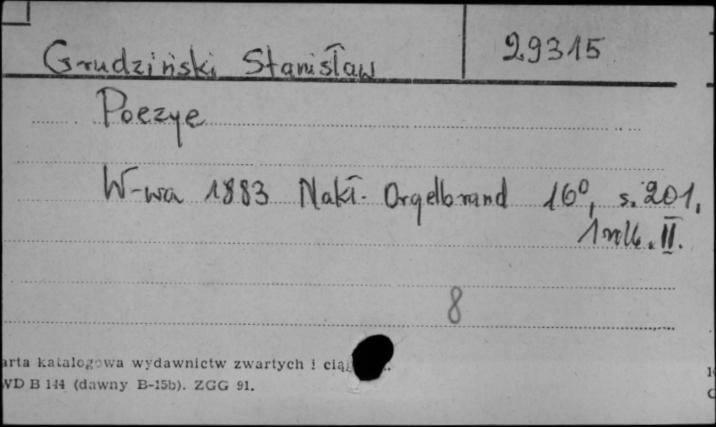 Grudziński Stanisław 29315
Poezye
W-wa 1883 Nakł. Orgelbrand 16⁰, s. 201,
II.
8
arta katalogowa wydawnictw zwartych i cią
WD B 144 (dawny B-15b). ZGG 91.